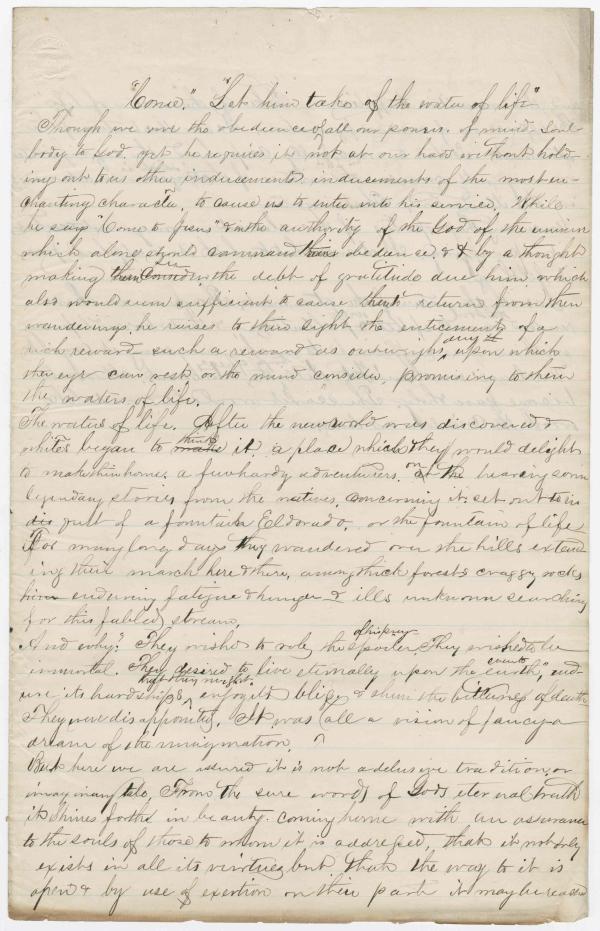 "Come." "Let him take of the water of life"
Though we owe the obedience of all our powers of mind soul
body to God, yet he requires it not at our hand without hold-
ing out to us other inducements inducements of the most en-
chanting character, to cause us to enter into his service. While
he says "Come to Jesus" & in the authority of the God of the universe
which alone should command their obedience, & & by a thought
making them the debt of gratitude due him which
also would seem sufficient to cause their return from their
wanderings, he raises to their sight the enticements of a
rich reward such a reward as outweighs any upon which
the eye can rest or the mind consider, promising to them
the waters of life.
The waters of life. After the new world was discovered &
whites began to make think it a place which they would delight
to make their home, a few hardy adventurers, on the hearing some
legendary stories from the natives, concerning it set out
pursuit of a fountain Eldorado, or the fountain of life
For many long days they wandered over the hills extend-
ing their march here & there, among thick forests craggy rocks
enduring fatigue & hunger & ills unknown searching
for this fabled stream.
And why? They wished to rob the spoiler of his prey They wished to be
immortal. They desired to live eternally upon the earth, end-
ure its hardships, enjoy its bliss & shun the bitterness of death
They were disappointed. It was all a vision of fancy a
dream of the imagination.
But here we are assured it is not a delusive tradition, or
imaginary tale. From the sure word of God's eternal truth
it shines forth in beauty coming home with an assurance
to the souls of those to whom it is addressed, that it not only
exists in all its virtues but that the way to it is
open & by use of exertion on their part it may be reached